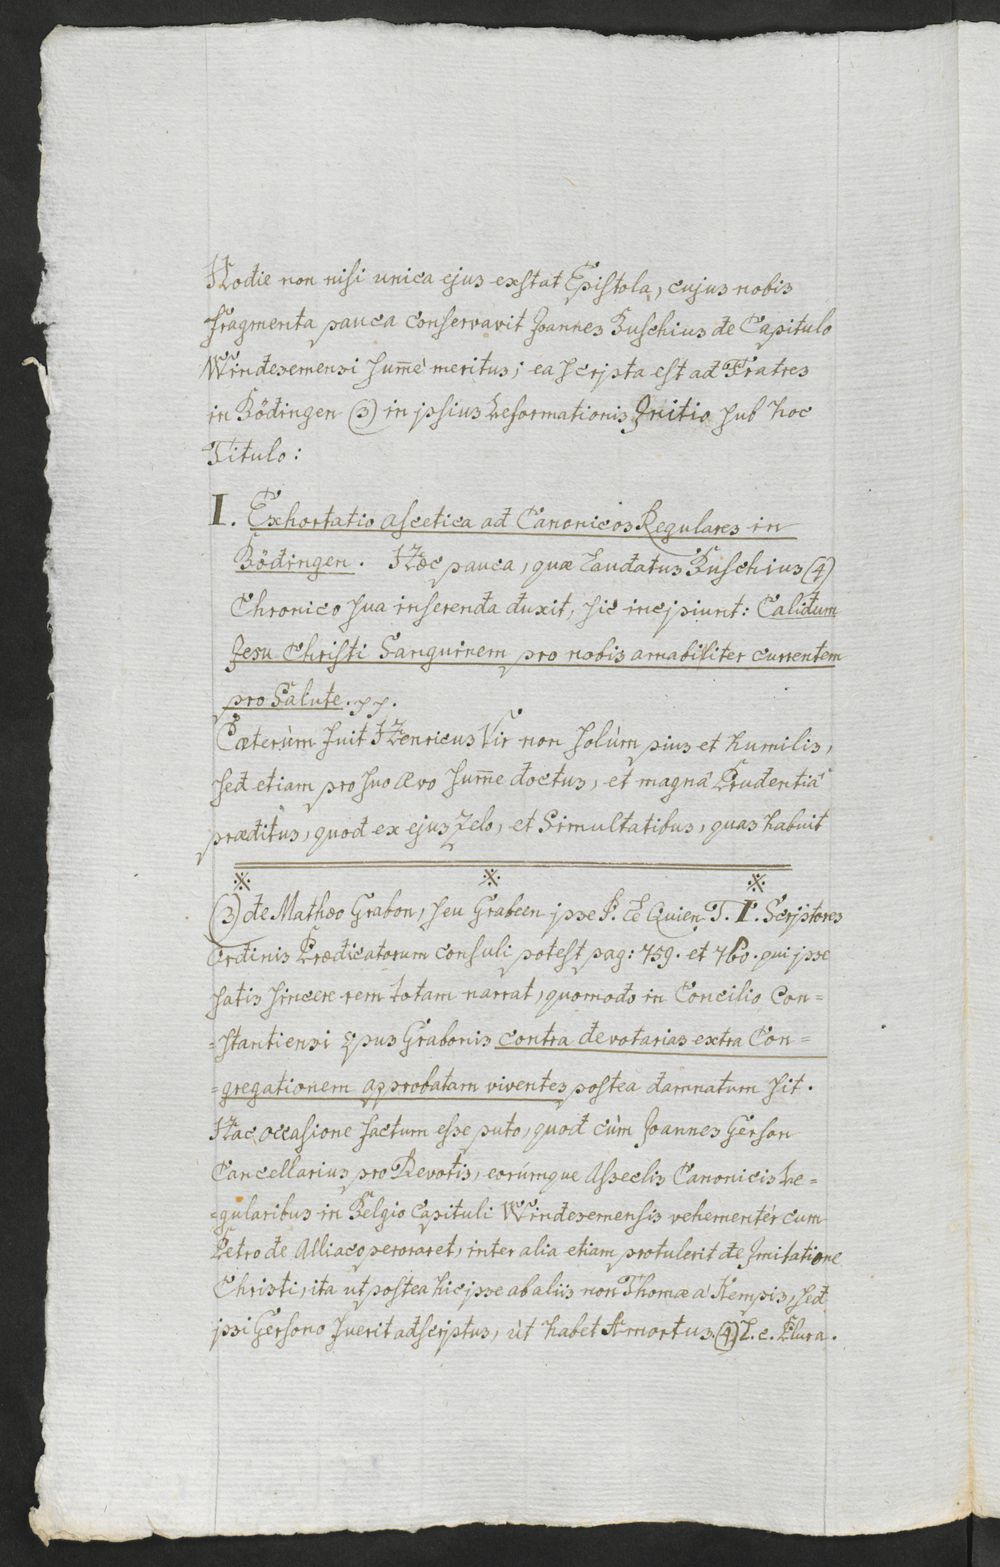 Hodie non nisi unica ejus exstat Epistola, cujus nobis
fragmenta pauca conservavit Joannes Buschius de Capitulo
Windesemensi sum̄è meritus; ea scripta est ad Fratres
in Bödingen (3) in ipsius Reformationis Initio sub hoc
Titulo:
I. Exhortatio ascetica ad Canonicos Regulares in
Bödingen. Hæc pauca, quæ Laudatus Buschius (4)
Chronico sua inserenda duxit, sic incipiunt: Calidum
Jesu Christi Sanguinem pro nobis amabiliter currentem
pro Salute. pp.
Cæterùm fuit Henricus Vir non solùm pius et humilis,
sed etiam pro suo ævo sum̄e doctus, et magnâ Prudentiâ
præditus, quod ex ejus Zelo, et Simultatibus, quas habuit
※ ※ ※
(3) de Mathæo Grabon, seu Grabeen ipse P. Le Quien T. I. Scriptores
Ordinis Prædicatorum consuli potest pag: 759. et 760. qui ipse
satis sincere rem totam narrat, quomodo in Concilio Con=
=stantiensi opus Grabonis contra devotarias extra Con=
=gregationem approbatam viventes postea damnatum sit.
Hac occasione factum esse puto, quod cùm Joannes Gerson
Cancellarius pro Devotis, eorúmque Asseclis Canonicis Re=
=gularibus in Belgio Capituli Windesemensis vehementèr cum
Petro de Alliaco peroraret, inter alia etiam protulerit de Imitatione
Christi, ita ut postea hic ipse ab aliis non Thomæ à Kempis, sed
ipsi Gersono fuerit adscriptus, ùt habet Amortus. (4) L. c. Plura.